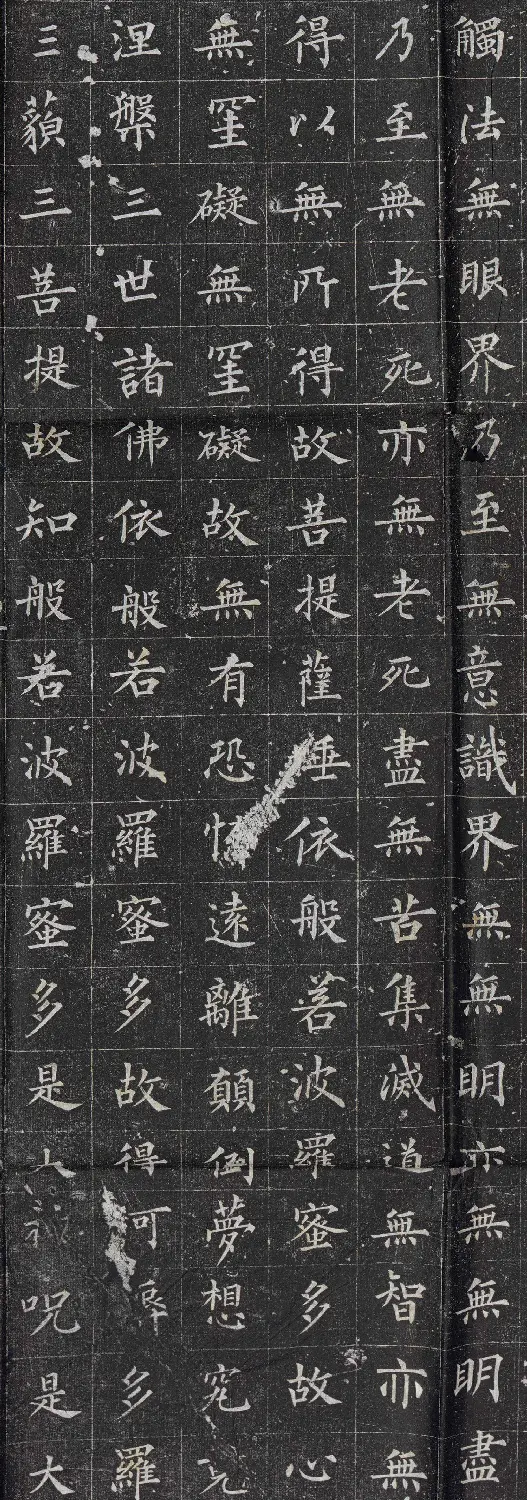 觸法無眼界乃至無意識界無無明亦無無明盡
乃至無老死亦無老死盡無苦集滅道無智亦無
得以無所得故菩提薩埵依般若波羅蜜多故心
無罣礙無罣礙故無有恐怖遠離顛倒夢想究竟
涅槃三世諸佛依般若波羅蜜多故得阿耨多羅
三藐三菩提故知般若波羅蜜多是大神呪是大